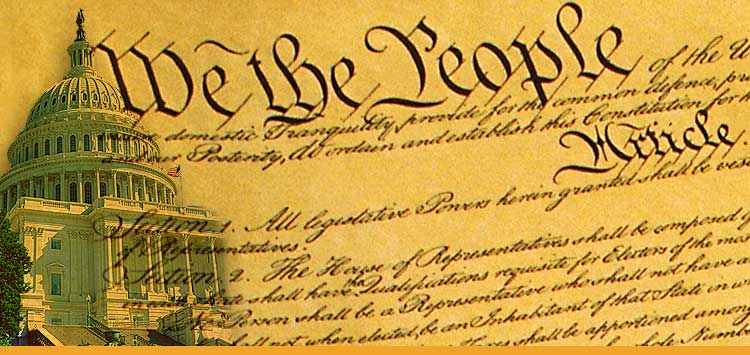 We the People
of the U
domestic Tranquility, provide for the common defence, pr
Posterity, do ordain and establish this Constitution for t
Article
Section 1. All legislative Powers herein granted shall be ves
of Representatives.
Section 2. The House of Representatives shall be composed
shall have the Qualifications requisite for Electors of the mo
Person shall be a Representative who shall not have a
shall not, when elected, be an Inhabitant of that State in w
shall be apportioned among
whole Num